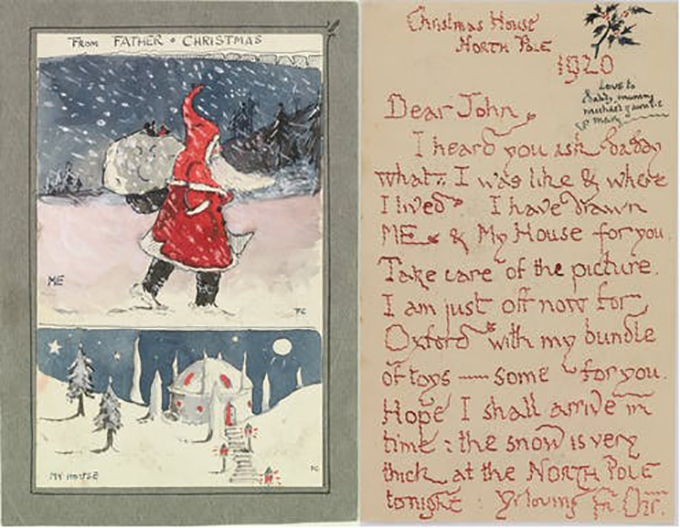 FROM FATHER CHRISTMAS
ME
FC
MY HOUSE
FC
Christmas House
NORTH POLE
1920
Love to
daddy, mummy
michael & auntie
mary
Dear John
I heard you ask daddy
what I was like & where
I lived I have drawn
ME & My House for you
Take care of the picture.
I am just off now for
Oxford with my bundle
of toys — some for you.
Hope I shall arrive in
time : the snow is very
thick at the NORTH POLE
tonight : Yr loving Fr. Chr.